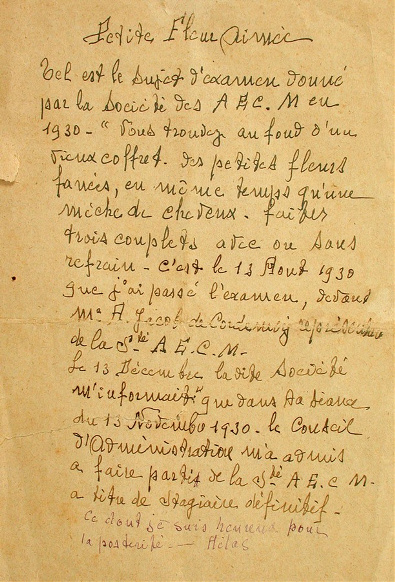 Petite Fleur aimée
Tel est le sujet d'examen donné
par la Société des A E C. M en
1930 - " Vous trouvez au fond d'un
vieux coffret. des petites fleurs
fanées, en même temps qu'une
mèche de cheveux - faites
trois couplets avec ou sans
refrain - c'est le 13 Aout 1930
que j'ai passé l'examen, devant
Mr A. Jacob de Cordemoy
de la Sté A E. C. M.
Le 13 Décembre la dite Société
m'informait que dans sa séance
du 13 Novembre 1930 - le Conseil
d'Administration m'a admis
a faire partie de la Sté A E. C M -
a titre de stagiaire définitif -
Ce dont je suis heureux pour
la postérité. - Hélas